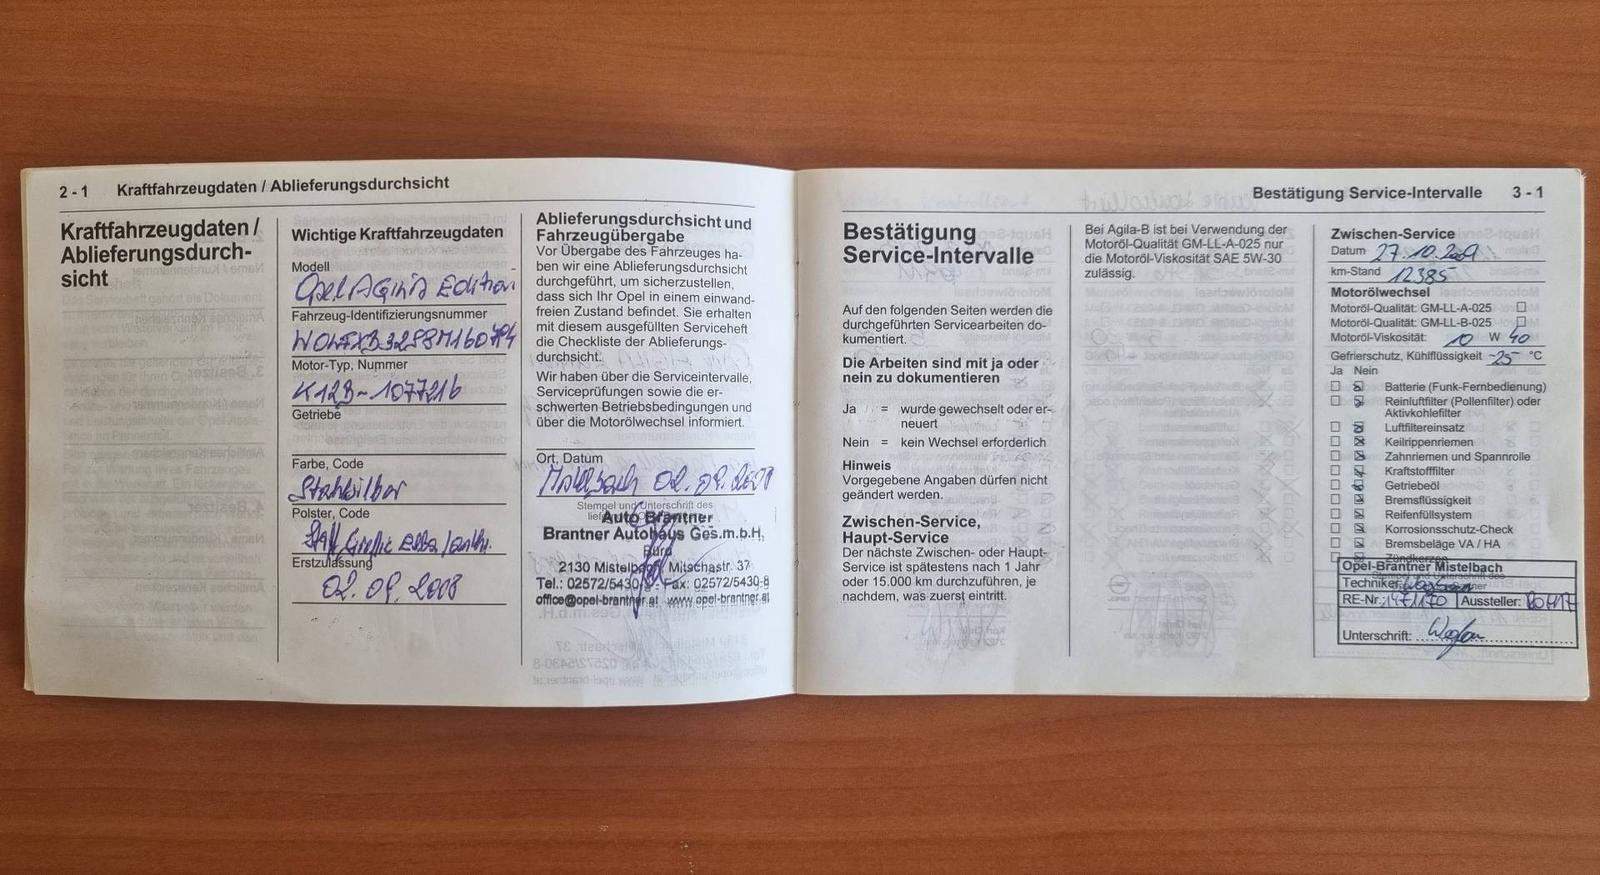 2 - 1 Kraftfahrzeugdaten / Ablieferungsdurchsicht
Kraftfahrzeugdaten /
Ablieferungsdurch-
sicht
Wichtige Kraftfahrzeugdaten
Modell
Opel Agila Edition
Fahrzeug-Identifizierungsnummer
Motor-Typ, Nummer
K12B-1077216
Getriebe
Farbe, Code
Stahlsilber
Polster, Code
Erstzulassung
02.09.2008
Ablieferungsdurchsicht und
Fahrzeugübergabe
Vor Übergabe des Fahrzeuges ha-
ben wir eine Ablieferungsdurchsicht
durchgeführt, um sicherzustellen,
dass sich Ihr Opel in einem einwand-
freien Zustand befindet. Sie erhalten
mit diesem ausgefüllten Serviceheft
die Checkliste der Ablieferungs-
durchsicht.
Wir haben über die Serviceintervalle,
Serviceprüfungen sowie die er-
schwerten Betriebsbedingungen und
über die Motorölwechsel informiert.
Ort, Datum
Mistelbach 02.09.2008
Stempel und Unterschrift des
Auto Brantner
Brantner Autohaus Ges.m.b.H.
Büro
2130 Mistelbach, Mitschastr. 37
Tel.: 02572/5430 Fax: 02572/5430-8
office@opel-brantner.at www.opel-brantner.at
Bestätigung Service-Intervalle 3 - 1
Bestätigung
Service-Intervalle
Auf den folgenden Seiten werden die
durchgeführten Servicearbeiten do-
kumentiert.
Die Arbeiten sind mit ja oder
nein zu dokumentieren
Ja = wurde gewechselt oder er-
neuert
Nein = kein Wechsel erforderlich
Hinweis
Vorgegebene Angaben dürfen nicht
geändert werden.
Zwischen-Service,
Haupt-Service
Der nächste Zwischen- oder Haupt-
Service ist spätestens nach 1 Jahr
oder 15.000 km durchzuführen, je
nachdem, was zuerst eintritt.
Bei Agila-B ist bei Verwendung der
Motoröl-Qualität GM-LL-A-025 nur
die Motoröl-Viskosität SAE 5W-30
zulässig.
Zwischen-Service
Datum 27.10.2009
km-Stand 12385
Motorölwechsel
Motoröl-Qualität: GM-LL-A-025
Motoröl-Qualität: GM-LL-B-025
Motoröl-Viskosität: 10 W 40
Gefrierschutz, Kühlflüssigkeit -25 °C
Ja Nein
Batterie (Funk-Fernbedienung)
Reinluftfilter (Pollenfilter) oder
Aktivkohlefilter
Luftfiltereinsatz
Keilrippenriemen
Zahnriemen und Spannrolle
Kraftstofffilter
Getriebeöl
Bremsflüssigkeit
Reifenfüllsystem
Korrosionsschutz-Check
Bremsbeläge VA / HA
Zündkerzen
Opel-Brantner Mistelbach
Techniker:
RE-Nr.: 1471170 Aussteller:
Unterschrift: